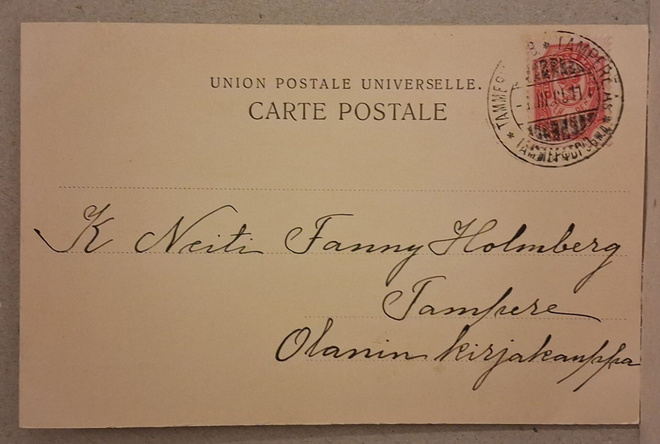 UNION POSTALE UNIVERSELLE.
CARTE POSTALE
TAMPERE
K Neiti Fanny Holmberg
Tampere
Olanin kirjakauppa